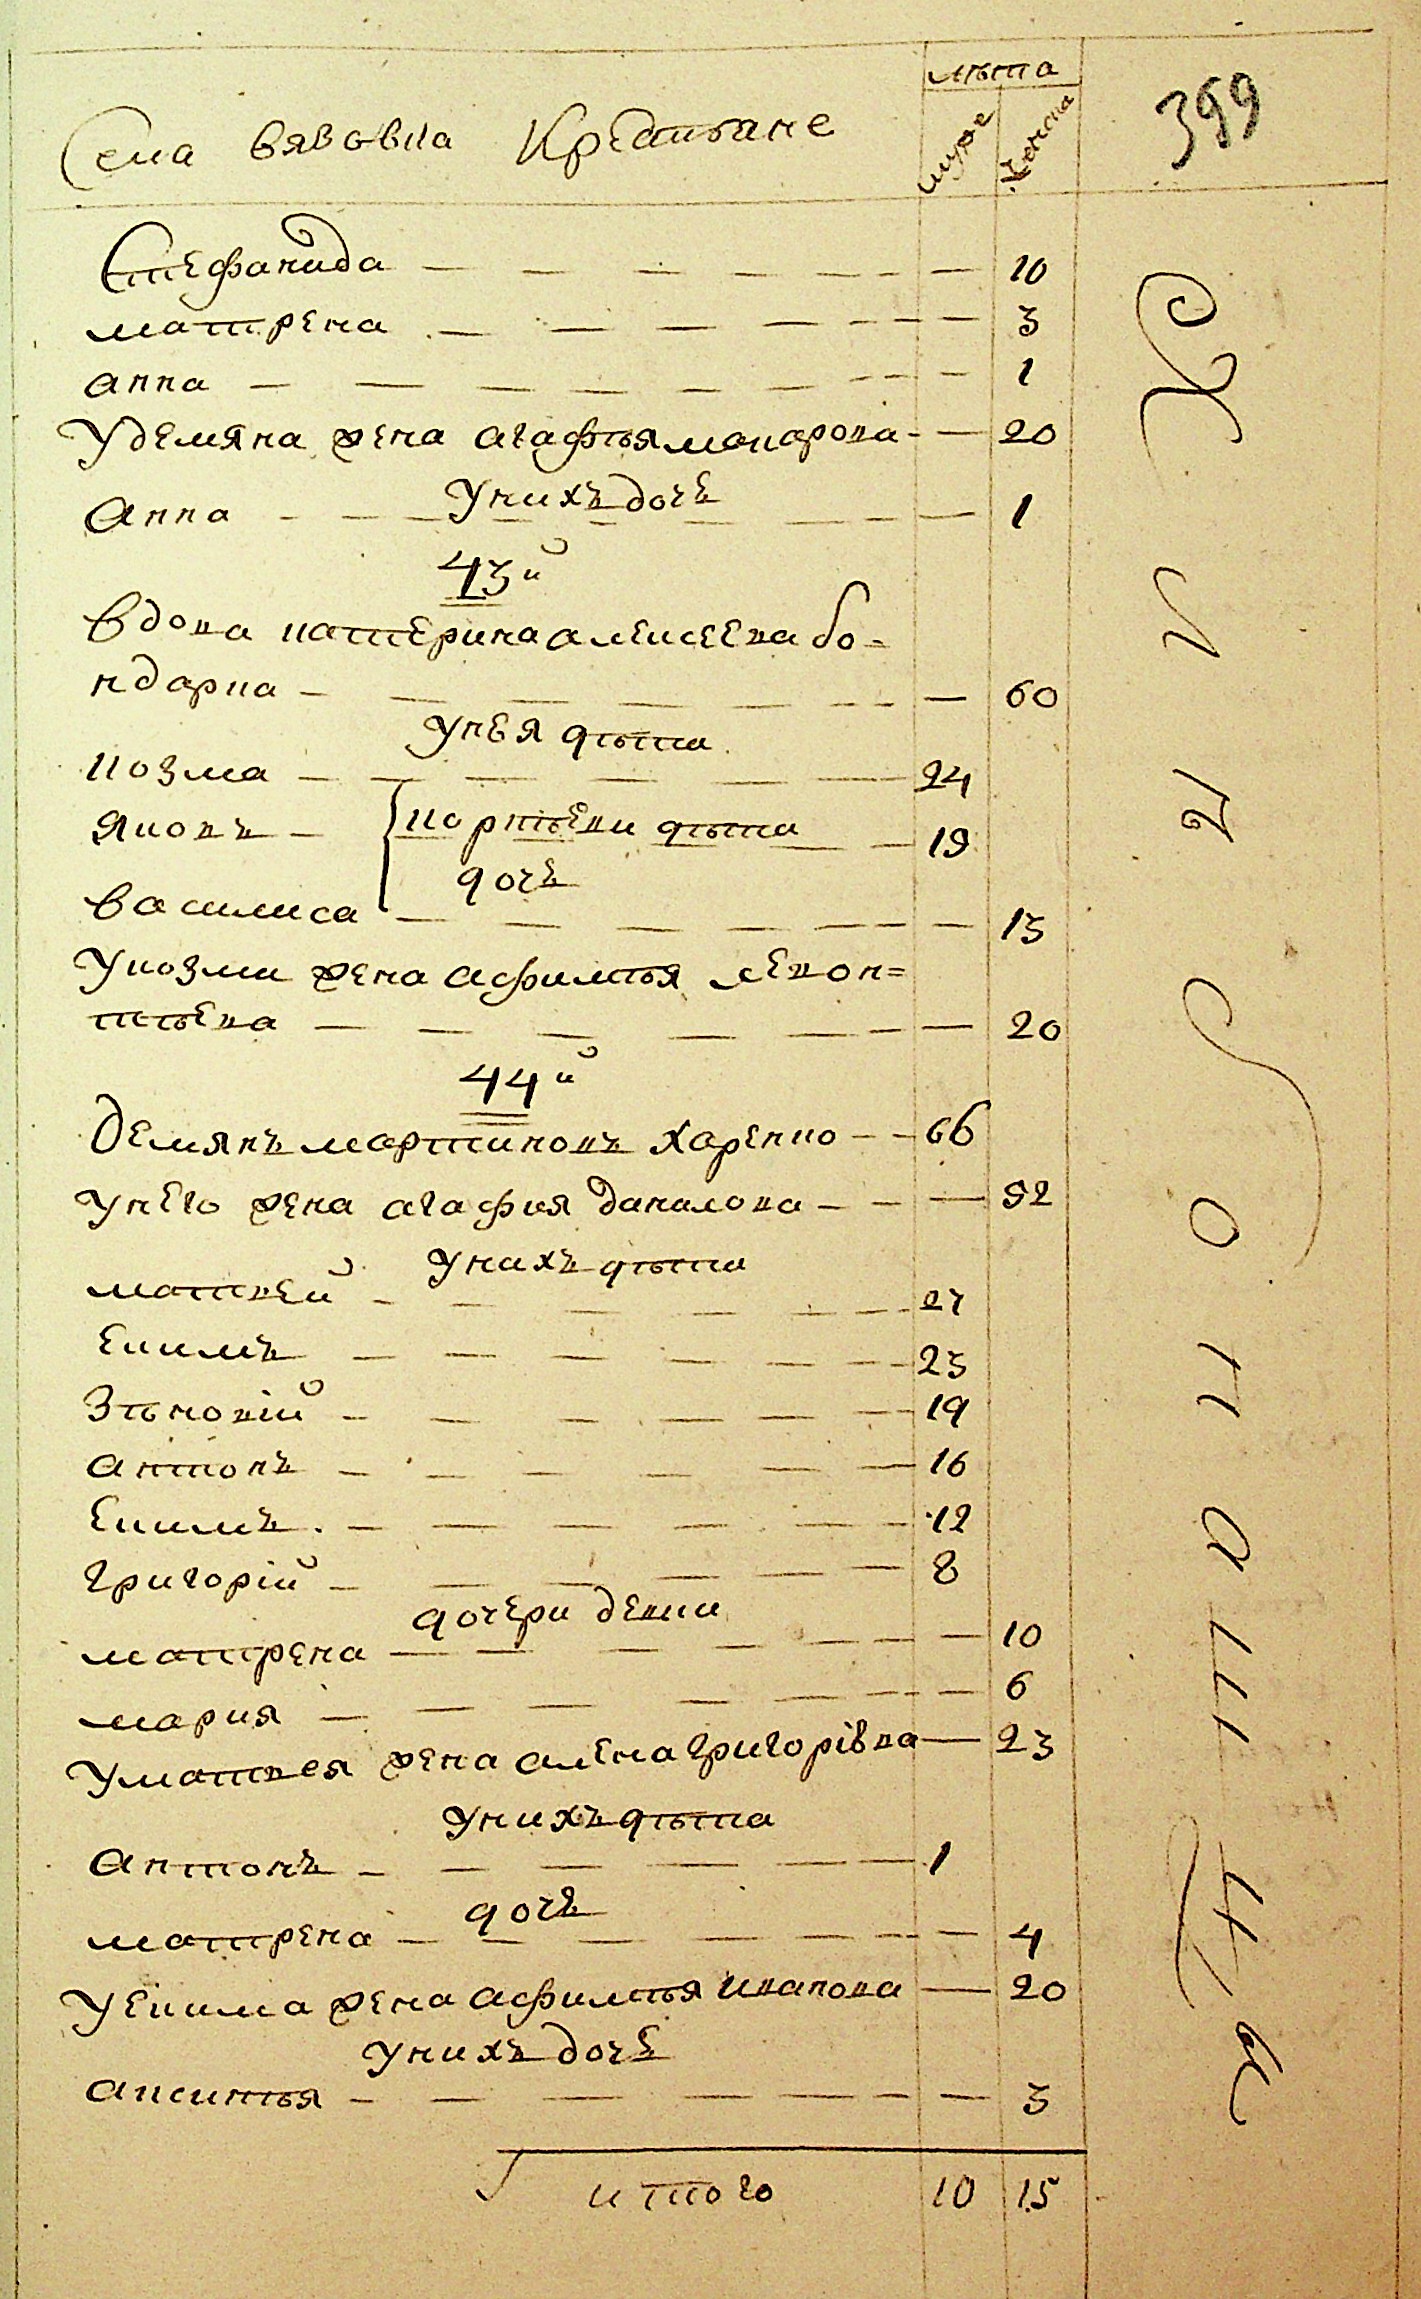 лѣта
Села вязовка Крестьяне
муже
женска
399
Стефанида — 10
матрена — 3
анна — 1
У демяна жена агафья макарова — 20
У нихъ дочь
Анна — 1
43й
вдова катерина алексеева бо=
ндарка — 60
У нея дѣти
козма — 24
яковъ — 19
корнѣеви дѣти
дочь
василиса — 13
У козми жена афимья левон=
тьева — 20
44й
демянъ мартиновъ харенко — 66
У него жена агафия данилова — 52
У нихъ дѣти
матвей — 27
Екимъ — 23
Зѣновій — 19
антонъ — 16
Екимъ — 12
григорій — 8
дочери девки
матрена — 10
мария — 6
У матвея жена алена григорівна — 23
У нихъ дѣти
Антонъ — 1
дочь
матрена — 4
У Екима жена афимья иванова — 20
У нихъ дочь
аксинья — 3
итого 10 15